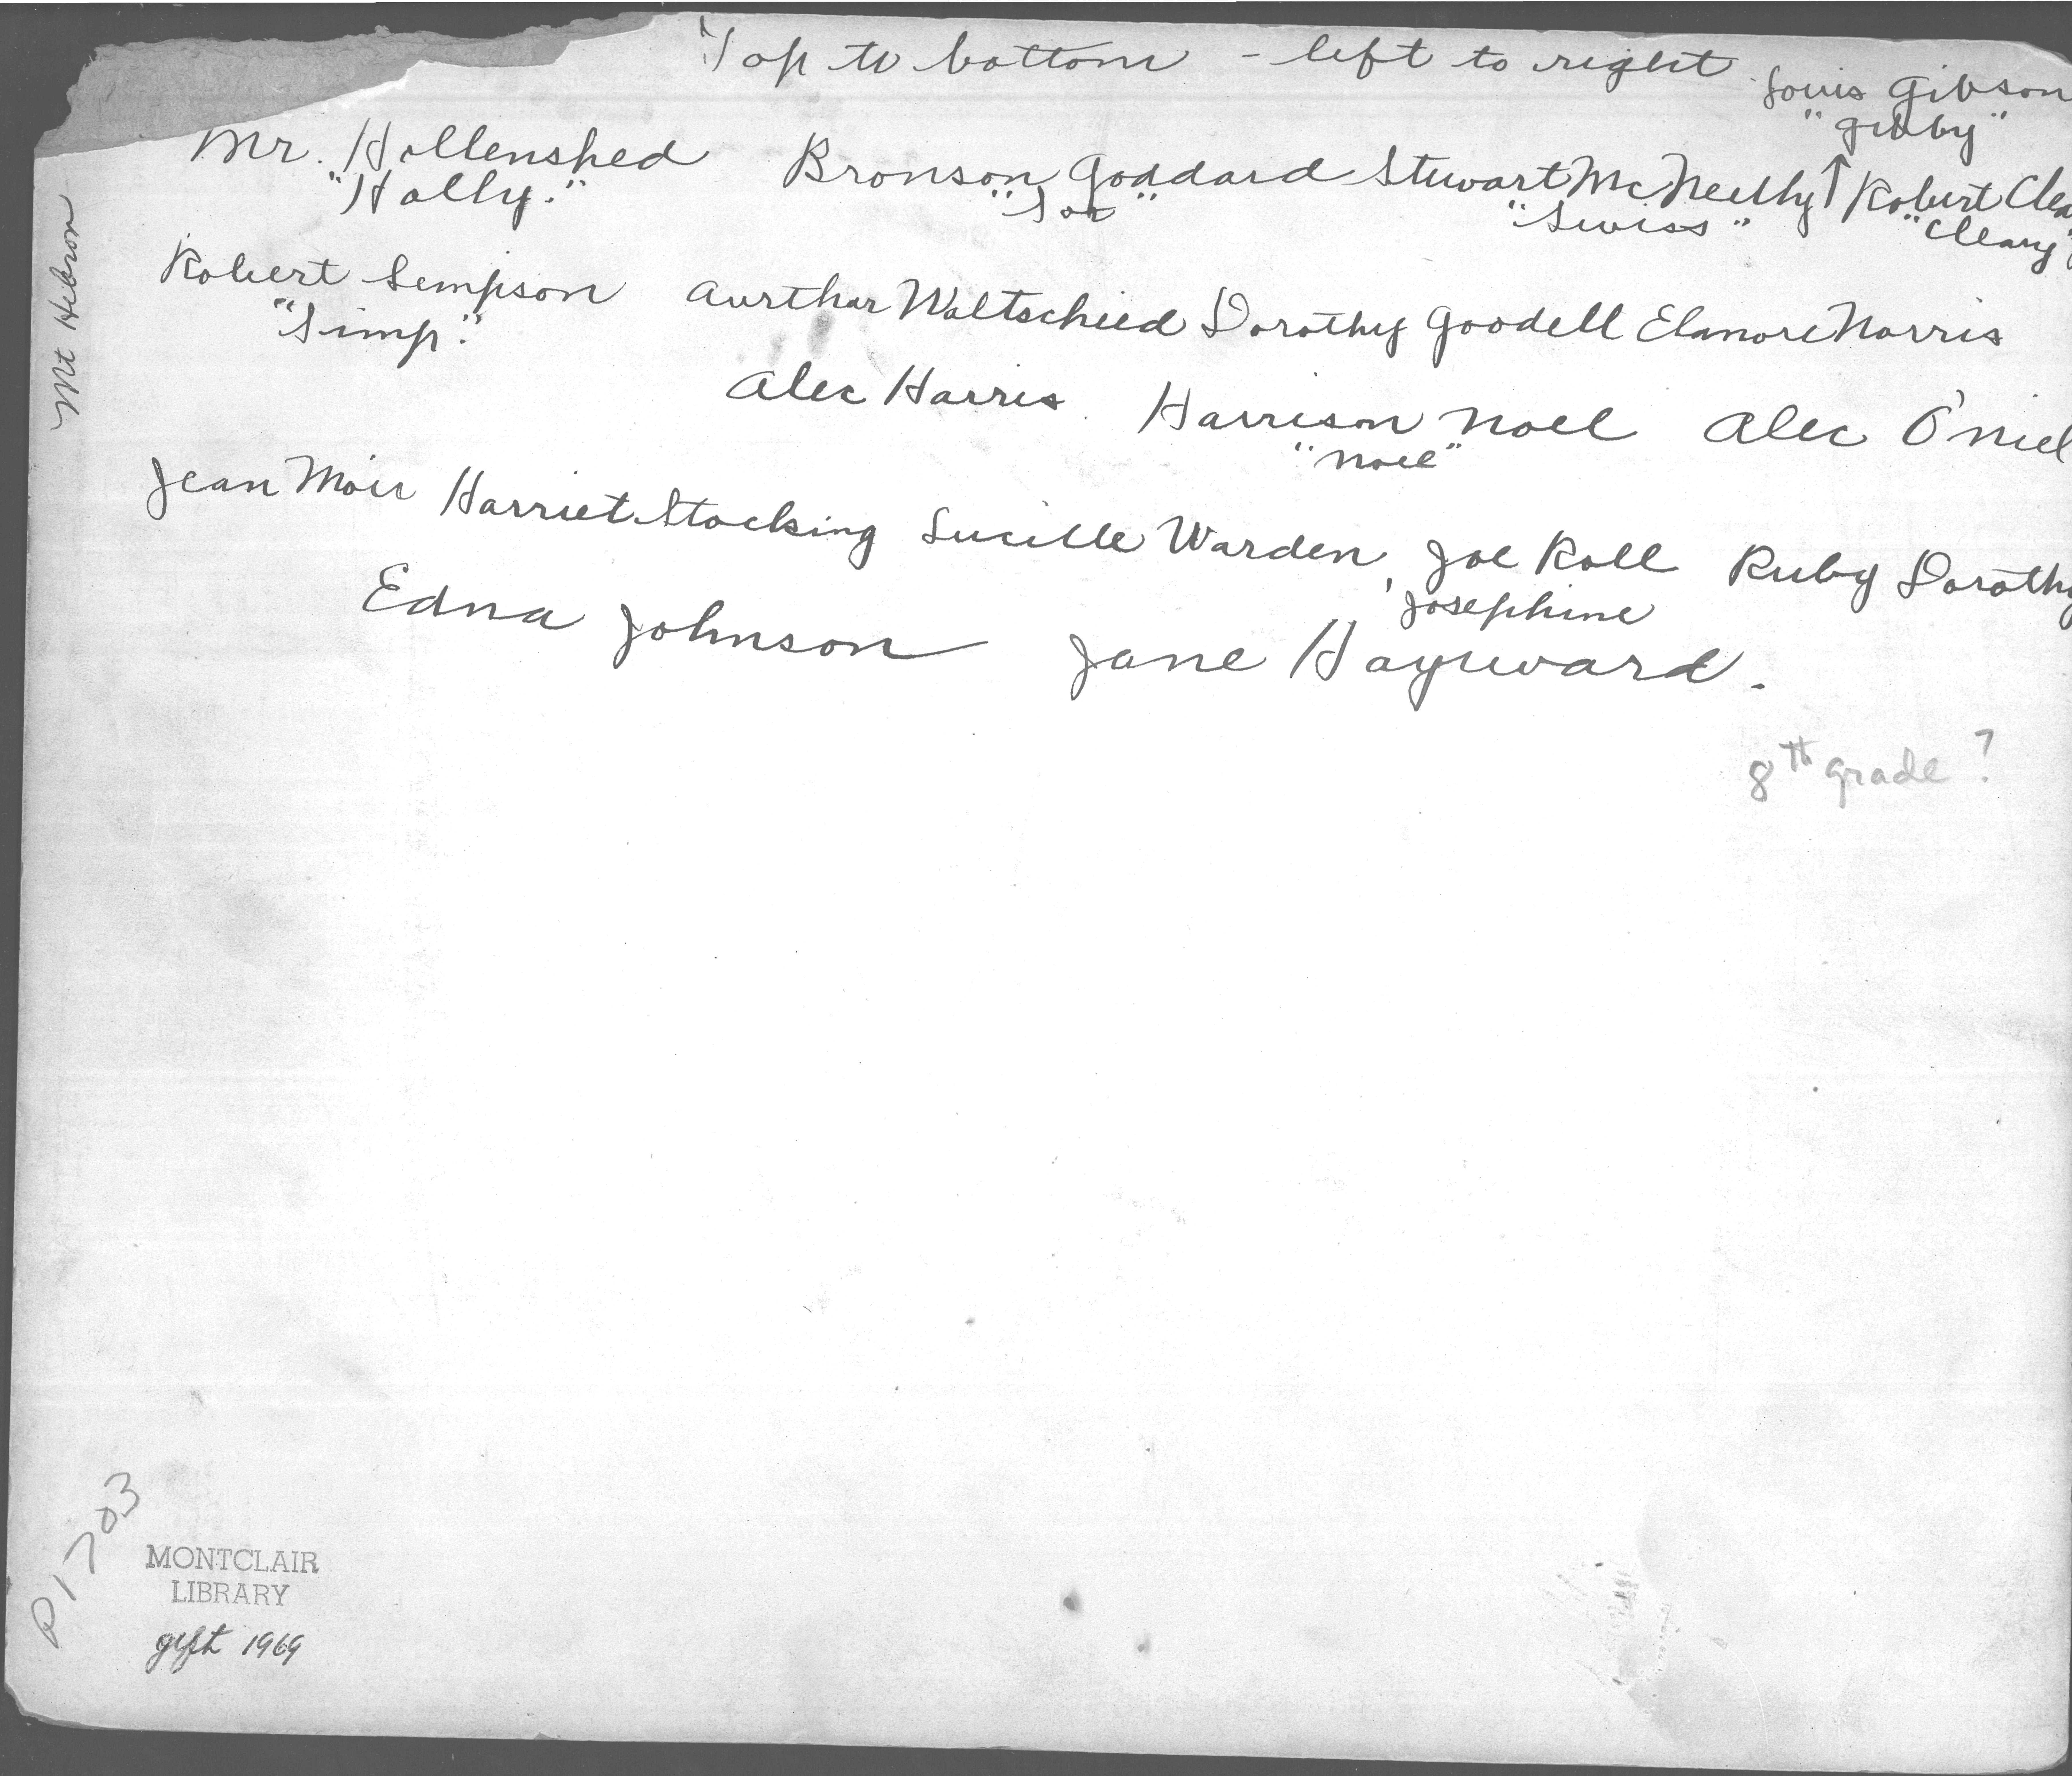 Top to bottom - left to right
Louis Gibson
"Gibby"
Mr. Hollenshed Bronson Goddard Stewart McNeelly ↑ Robert Clea
"Holly." "Swiss" "Cleary"
Robert Sempson Aurthur Waltscheid Dorothy Goodell Elanore Norris
"Simp."
Alec Harris. Harrison Noel Alec O'niel
"Noel"
Jean Moir Harriet Stocking Lucille Warden, Joe Roll Ruby Dorothy
Josephine
Edna Johnson Jane Hayward.
8th grade?
Mt Hebron
P1703
MONTCLAIR
LIBRARY
gift 1969